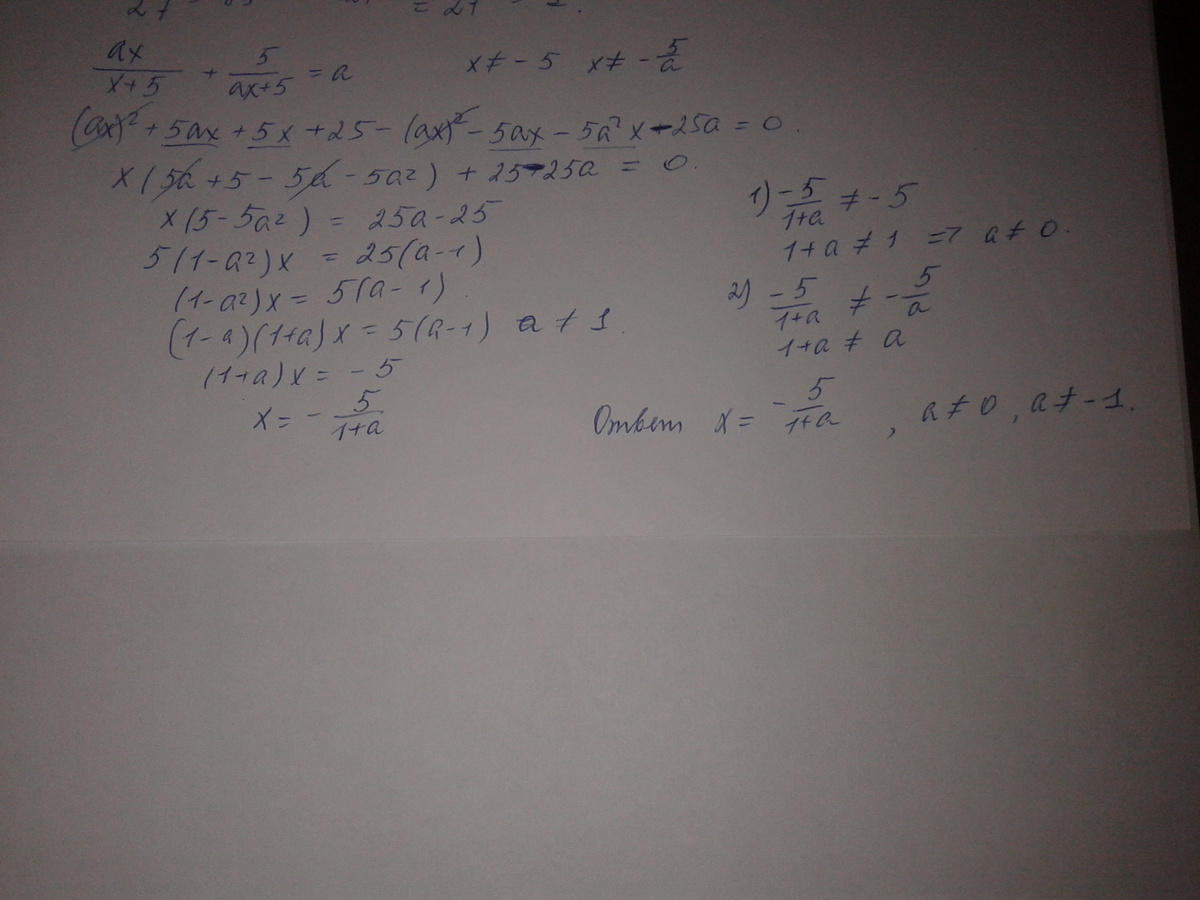 ax/(x+5) + 5/(ax+5) = a x ≠ -5 x ≠ -5/a
(ax)² + 5ax + 5x + 25 - (ax)² - 5ax - 5a²x - 25a = 0.
x(5a + 5 - 5a - 5a²) + 25 - 25a = 0.
x(5 - 5a²) = 25a - 25
5(1 - a²)x = 25(a - 1)
(1 - a²)x = 5(a - 1).
(1 - a)(1 + a)x = 5(a - 1) a ≠ 1.
(1 + a)x = -5
x = - 5/(1+a)
1) -5/(1+a) ≠ -5
1 + a ≠ 1 => a ≠ 0.
2) -5/(1+a) ≠ -5/a
1 + a ≠ a
Ответ x = -5/(1+a), a ≠ 0, a ≠ -1.